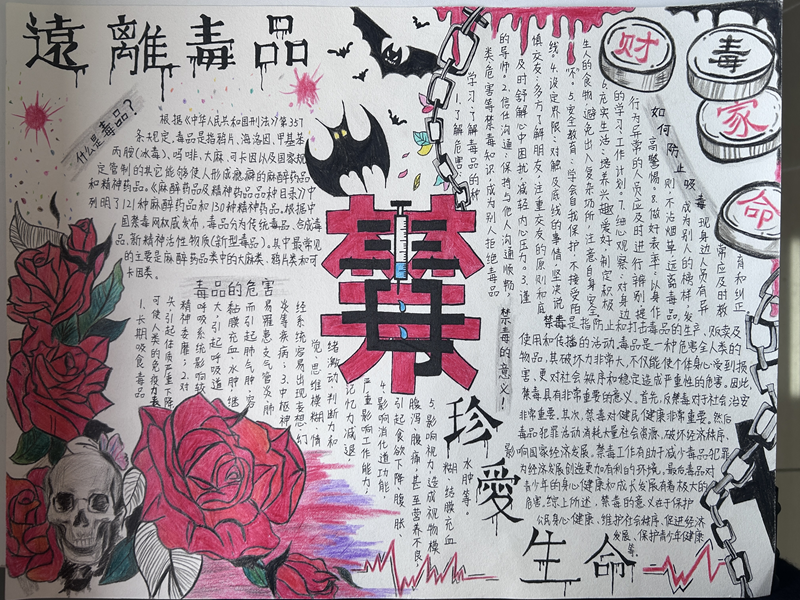 遠離毒品
什么是毒品?
根据《中华人民共和国刑法》第357
条规定,毒品是指鸦片、海洛因、甲基苯
丙胺(冰毒)、吗啡、大麻、可卡因以及国家规
定管制的其它能够使人形成瘾癖的麻醉药品
和精神药品。《麻醉药品及精神药品品种目录》中
列明了121种麻醉药品和130种精神药品。根据中
国禁毒网权威发布,毒品分为传统毒品、合成毒
品、新精神活性物质(新型毒品)。其中最常见
的主要是麻醉药品类中的大麻类、鸦片类和可
卡因类。
毒品的危害
1、长期吸食毒品
可使人类的免疫力
头引起体质严重下降
精神萎靡;2、对
呼吸系统影响较
大引起呼吸道
黏膜充血水肿继
而引起肺气肿,容
易罹患支气管炎、肺
炎等疾病;3、中枢神
经系统容易出现妄想、幻
觉、思维模糊、情
绪激动、判断力和
记忆力减退
严重影响工作能力;
4、影响消化道功能,
引起食欲下降、腹胀、
腹泻、腹痛,甚至营养不良;
5、影响视力,造成视物模
糊、结膜充血
水肿等。
禁毒
如何防止吸毒
1、了解危害:
学习、了解毒品的种
类危害等禁毒知识,成为别人拒绝毒品
的导师。2、信任沟通:保持与他人沟通顺畅,
及时舒解心中困扰,减轻内心压力。3、谨
慎交友:多方了解朋友,注重交友的原则和底
线。4、设定界限:对触及底线的事情,坚决说
“不”。5、安全教育:学会自我保护,不接受陌
生人的食物,避免出入复杂场所,注意自身安全。
6、充实生活:培养兴趣爱好,制定积极
的学习工作计划。7、细心观察:对身边
行为异常的人员进行辨别,提
高警惕。8、做好表率:以身作
则,不沾烟草,远离毒品,
成为别人的榜样,发
现身边人员有异
常应及时教
育和纠正
财
毒
家
命
禁毒的意义!
禁毒是指防止和打击毒品的生产、贩卖及
使用和传播的活动,毒品是一种危害全人类的
物品,其破坏力非常大,不仅能使个体身心受到损
害,更对社会秩序和稳定造成严重性的危害。因此,
禁毒具有非常重要的意义。首先,反禁毒对于社会治安
非常重要。其次,禁毒对健民健康非常重要。然后
毒品犯罪活动消耗大量社会资源,破坏经济秩序,
影响国家经济发展。禁毒工作有助于减少毒品犯罪
为经济发展创造更加有利的环境。最后毒品对
青少年的身心健康和成长发展有着极大的
危害。综上所述,禁毒的意义在于保护
公民身心健康、维护社会秩序、促进经济
发展、保护青少年健康
等。
珍愛生命